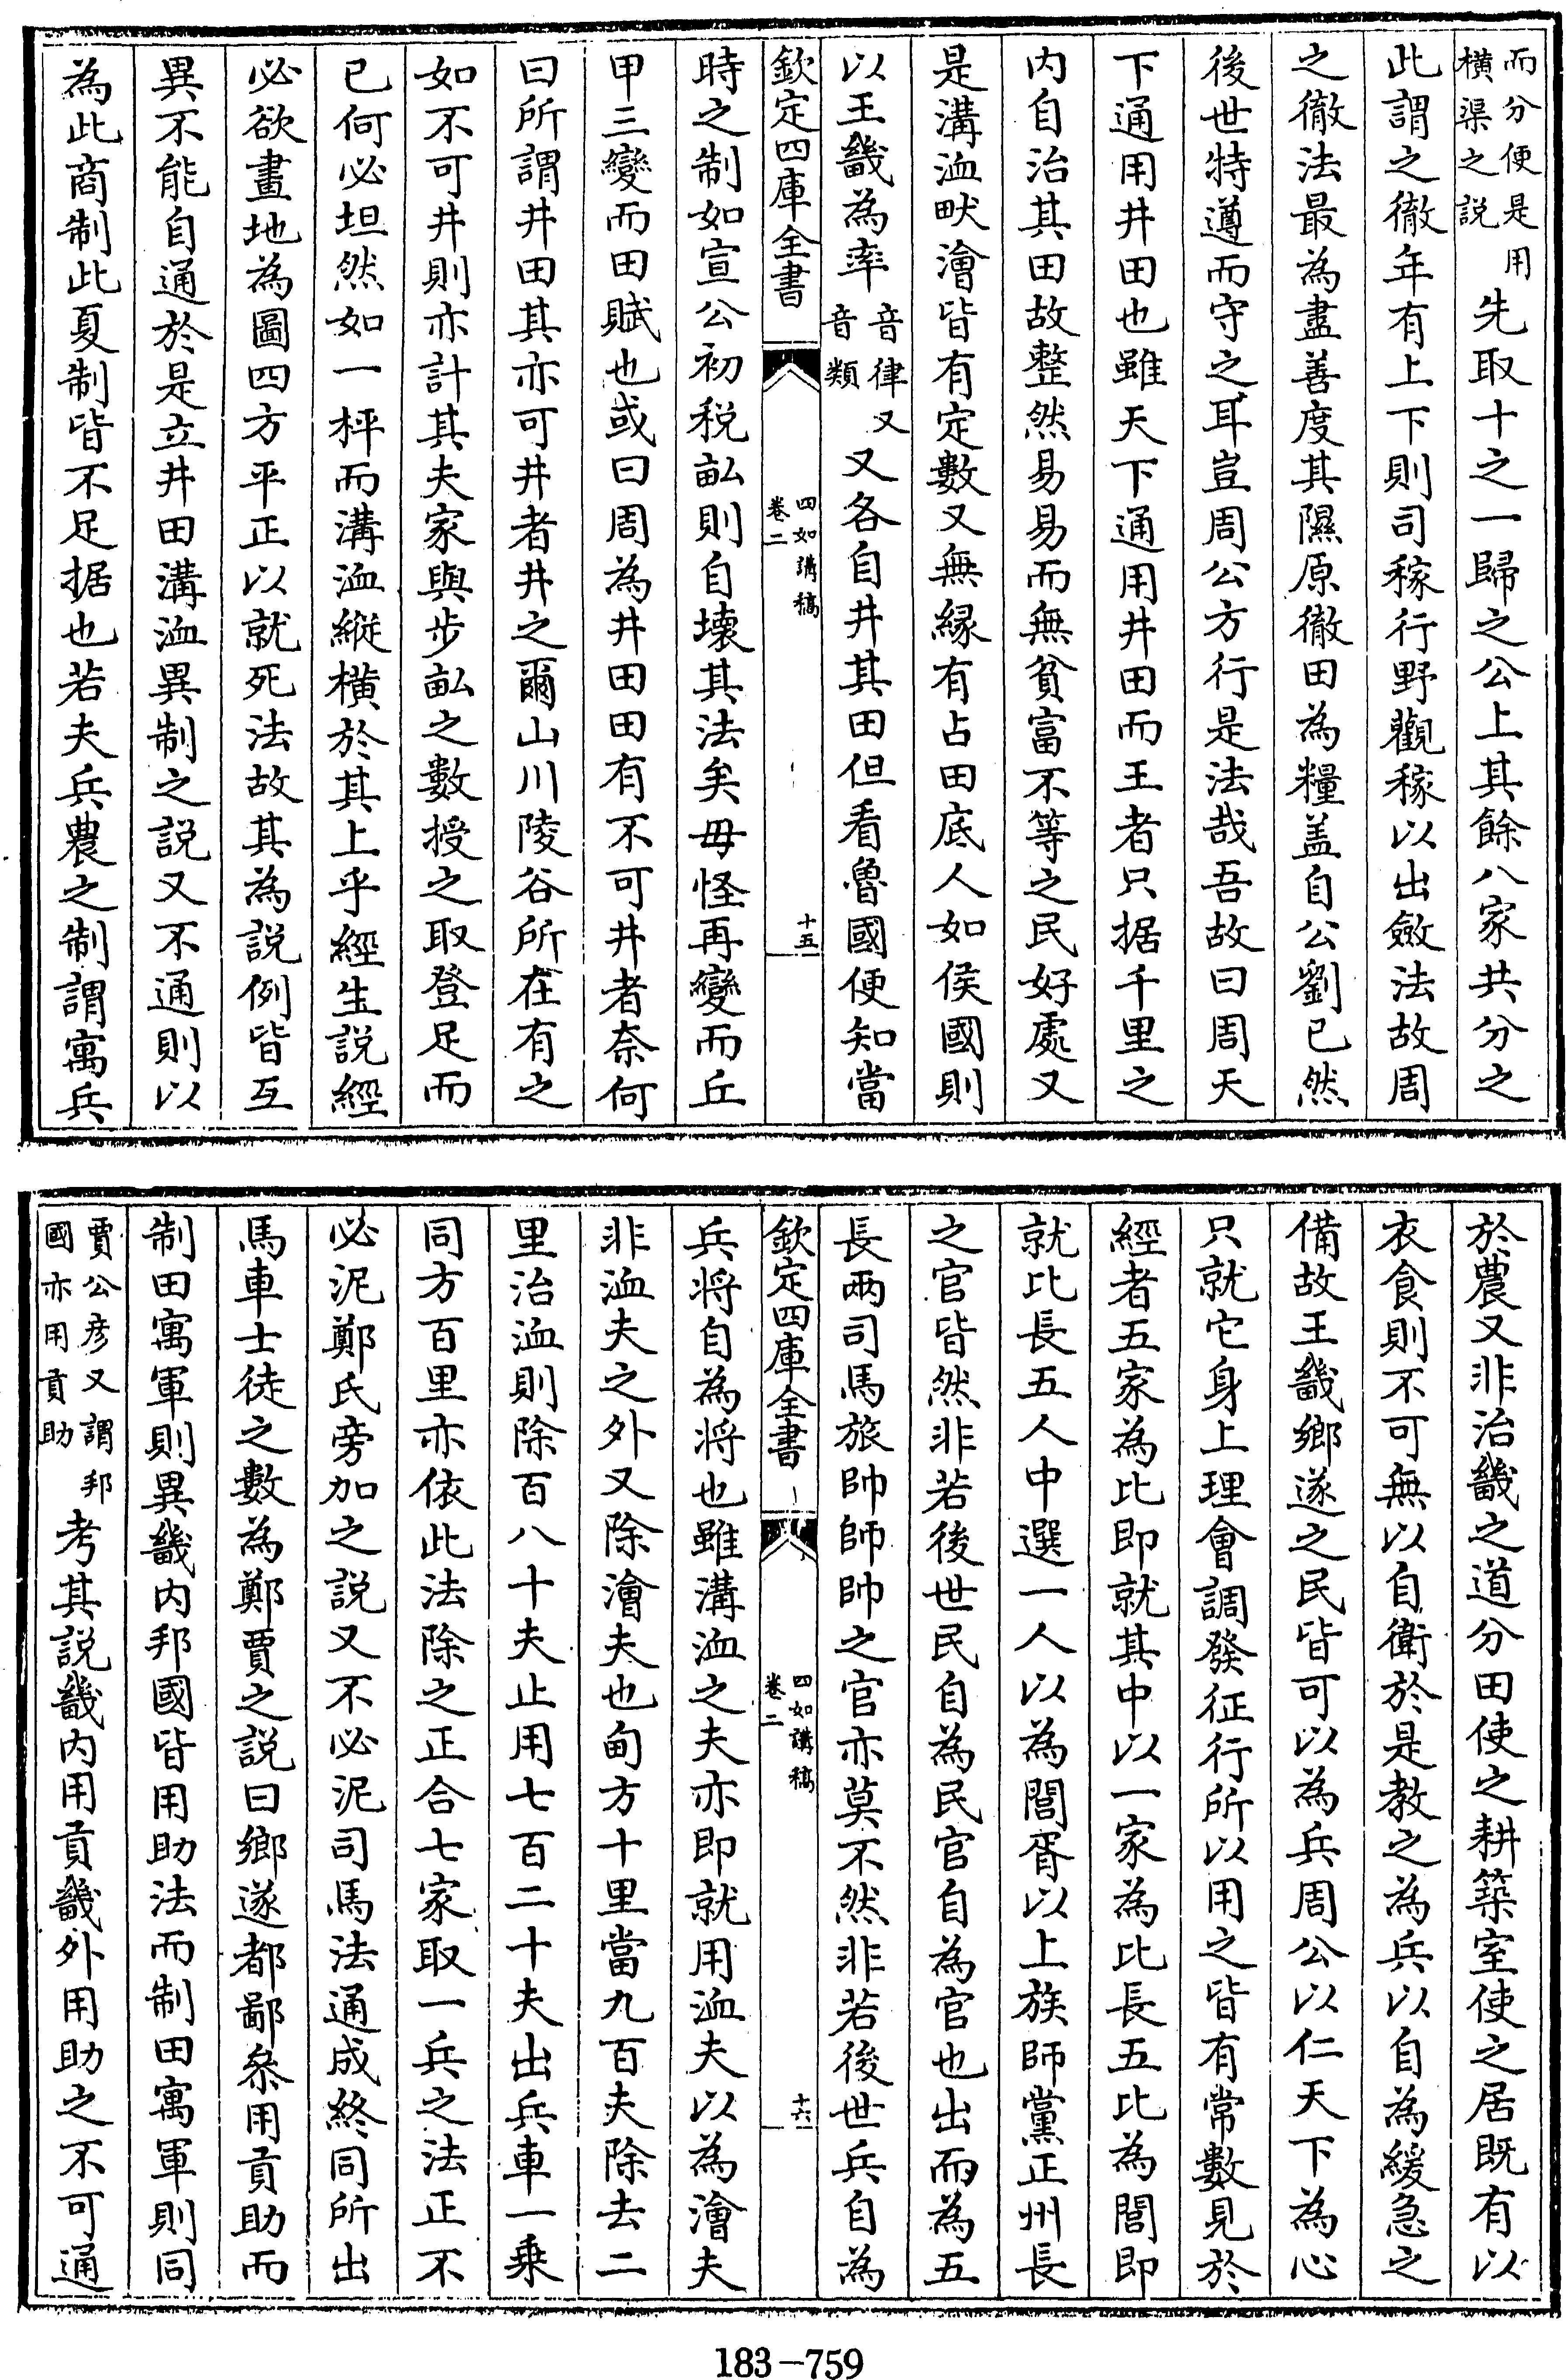 而分便是用
橫渠之説
先取十之一歸之公上其餘八家共分之
此謂之徹年有上下則司稼行野觀稼以出斂法故周
之徹法最為盡善度其隰原徹田為糧盖自公劉已然
後世特遵而守之耳豈周公方行是法哉吾故曰周天
下通用井田也雖天下通用井田而王者只据千里之
内自治其田故整然易易而無貧富不等之民好處又
是溝洫畎澮皆有定數又無縁有占田底人如侯國則
以王畿為率
音律又
音類
又各自井其田但看魯國便知當
欽定四庫全書
四如講稿
卷二
十五
時之制如宣公初税畝則自壊其法矣毋怪再變而丘
甲三變而田賦也或曰周為井田田有不可井者奈何
曰所謂井田其亦可井者井之爾山川陵谷所在有之
如不可井則亦計其夫家與步畝之數授之取登足而
已何必坦然如一枰而溝洫縱橫於其上乎經生説經
必欲畫地為圖四方平正以就死法故其為説例皆互
異不能自通於是立井田溝洫異制之説又不通則以
為此商制此夏制皆不足据也若夫兵農之制謂寓兵
於農又非治畿之道分田使之耕築室使之居既有以
衣食則不可無以自衛於是教之為兵以自為緩急之
備故王畿鄉遂之民皆可以為兵周公以仁天下為心
只就它身上理會調發征行所以用之皆有常數見於
經者五家為比即就其中以一家為比長五比為閭即
就比長五人中選一人以為閭胥以上族師黨正州長
之官皆然非若後世民自為民官自為官也出而為五
長兩司馬旅帥師帥之官亦莫不然非若後世兵自為
欽定四庫全書
四如講稿
卷二
十六
兵将自為将也雖溝洫之夫亦即就用洫夫以為澮夫
非洫夫之外又除澮夫也甸方十里當九百夫除去二
里治洫則除百八十夫止用七百二十夫出兵車一乗
同方百里亦依此法除之正合七家取一兵之法正不
必泥鄭氏旁加之説又不必泥司馬法通成終同所出
馬車士徒之數為鄭賈之説曰鄉遂都鄙叅用貢助而
制田寓軍則異畿内邦國皆用助法而制田寓軍則同
賈公彦又謂邦
國亦用貢助
考其説畿内用貢畿外用助之不可通
183-759